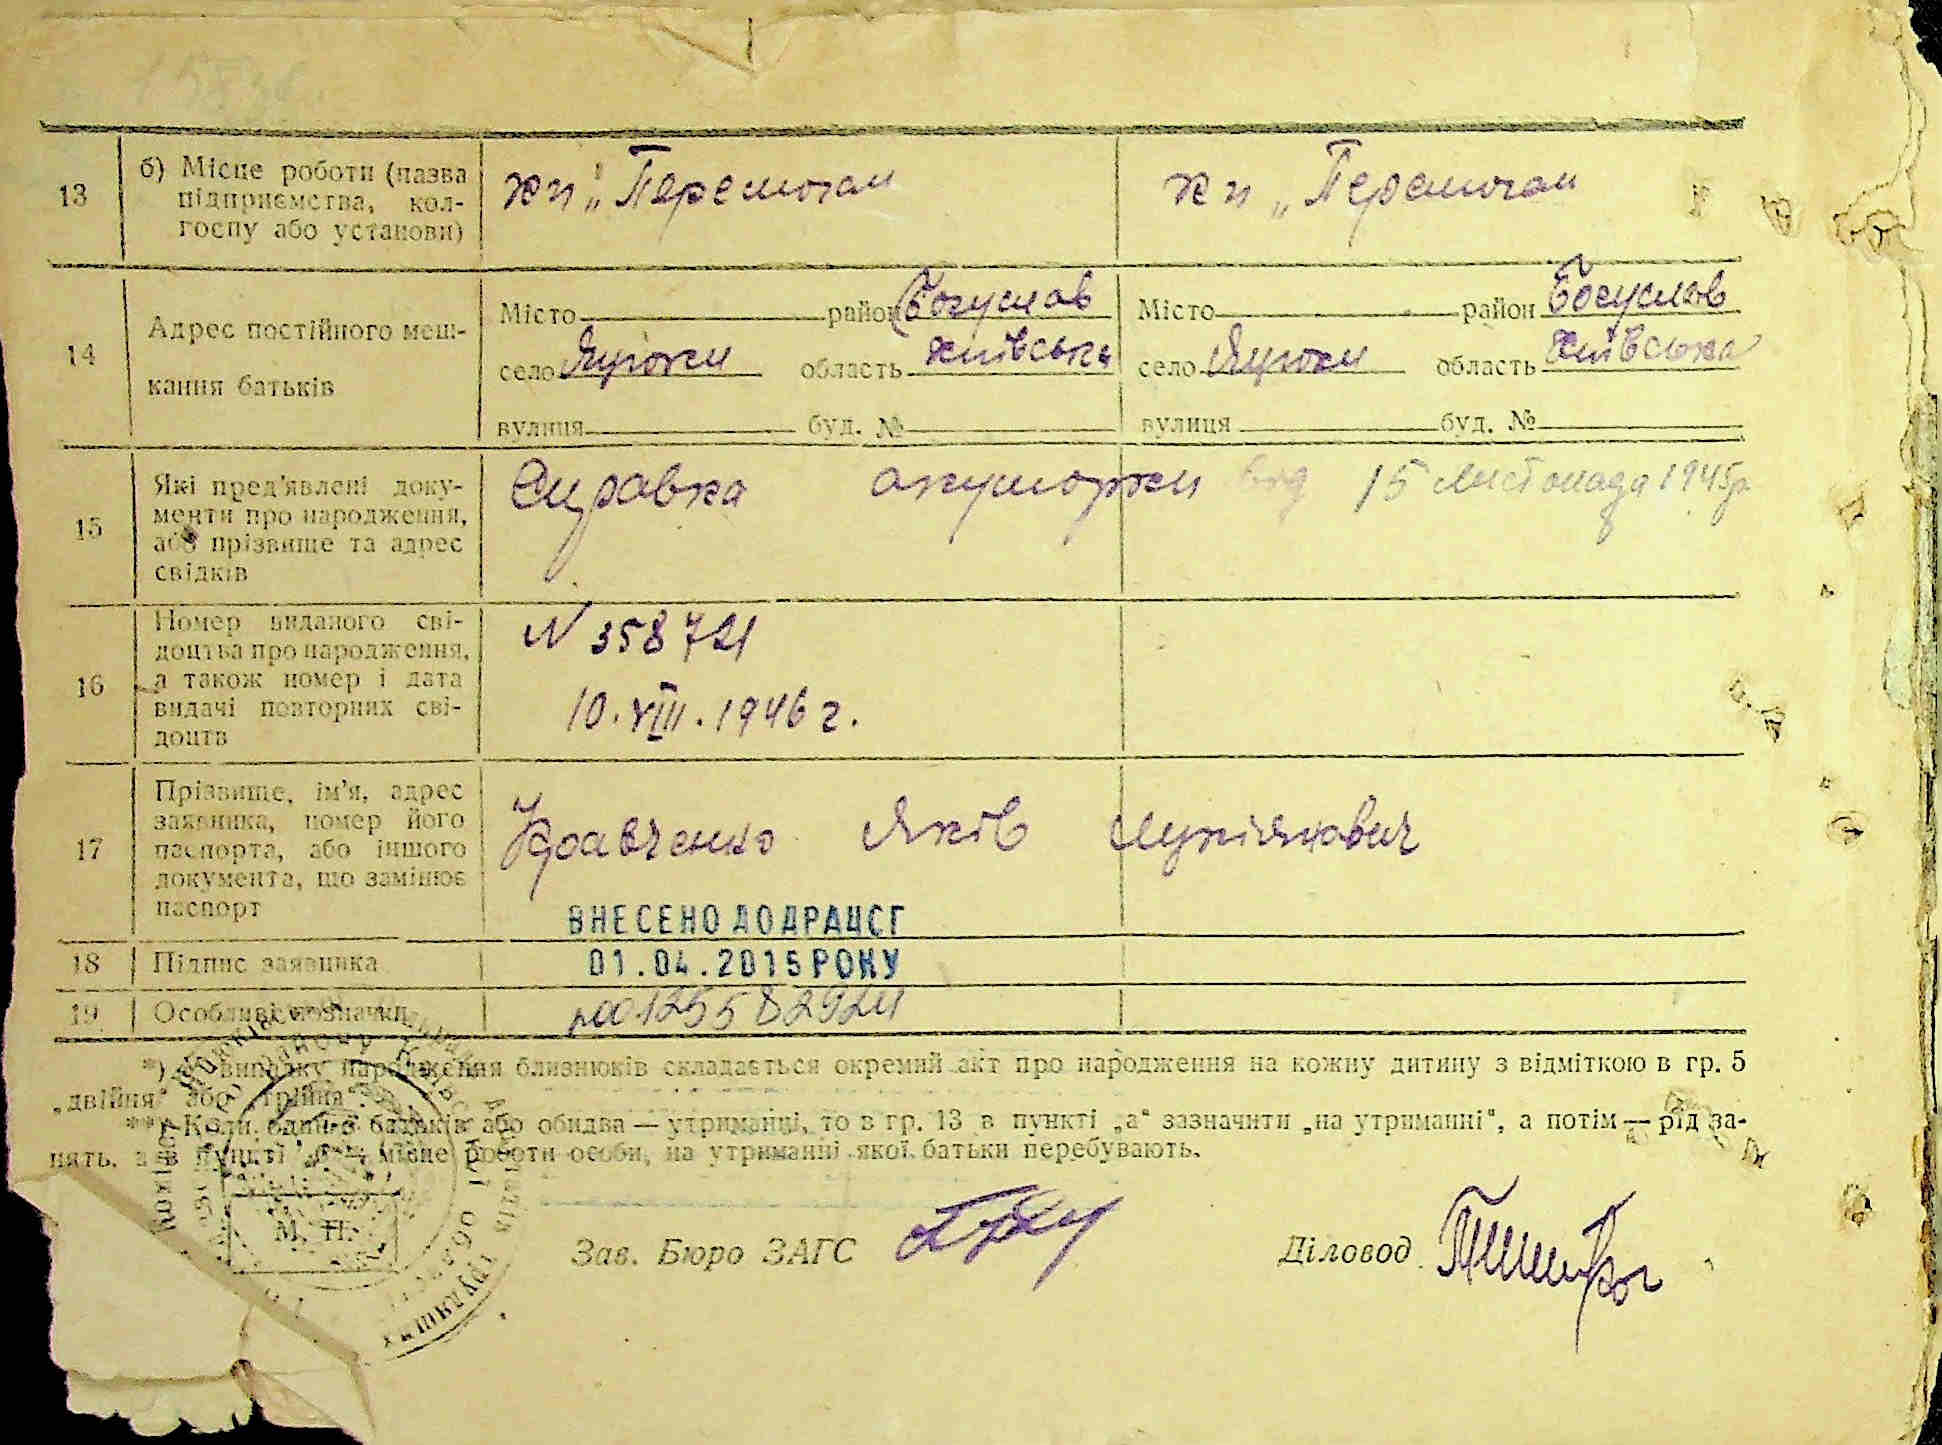 13
б) Місце роботи (назва
підприємства, кол-
госпу або установи)
кп „Перемогам
кп „Перемогам
14
Адрес постійного меш-
кання батьків
Місто район Богуслав
село область Київська
вулиця буд. №
Місто район Богуслав
село область Київська
вулиця буд. №
15
Які пред'явлені доку-
менти про народження,
або прізвище та адрес
свідків
Справка акушорки від 15 листопада 1945р
16
Номер виданого сві-
доцтва про народження,
а також номер і дата
видачі повторних сві-
доцтв
N 358721
10.VIII.1946 г.
17
Прізвище, ім'я, адрес
заявника, номер його
паспорта, або іншого
документа, що замінює
паспорт
Кравченко Яків Лукіянович
ВНЕСЕНО ДО ДРАЦСГ
18
Підпис заявника
01.04.2015 РОКУ
19
Особливі позначки
*) У випадку народження близнюків складається окремий акт про народження на кожну дитину з відміткою в гр. 5
„двійня“ або „трійня“.
**) Коли один з батьків або обидва — утриманці, то в гр. 13 в пункті „а“ зазначити „на утриманні“, а потім — рід за-
нять, а в пункті „б“ місце роботи особи, на утриманні якої батьки перебувають.
М. П.
Зав. Бюро ЗАГС
Діловод